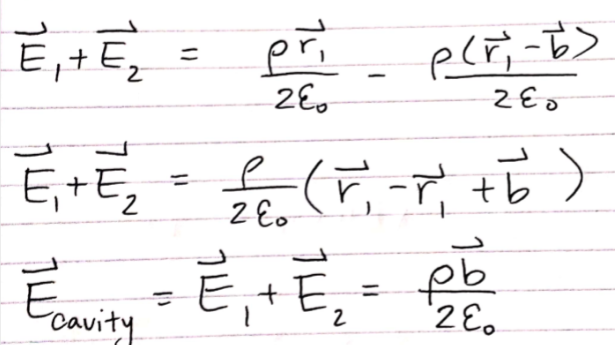 $\vec{E}_1 + \vec{E}_2 = \frac{\rho \vec{r}_1}{2\varepsilon_0} - \frac{\rho(\vec{r}_1 - \vec{b})}{2\varepsilon_0}$
$\vec{E}_1 + \vec{E}_2 = \frac{\rho}{2\varepsilon_0}(\vec{r}_1 - \vec{r}_1 + \vec{b})$
$\vec{E}_{cavity} = \vec{E}_1 + \vec{E}_2 = \frac{\rho \vec{b}}{2\varepsilon_0}$